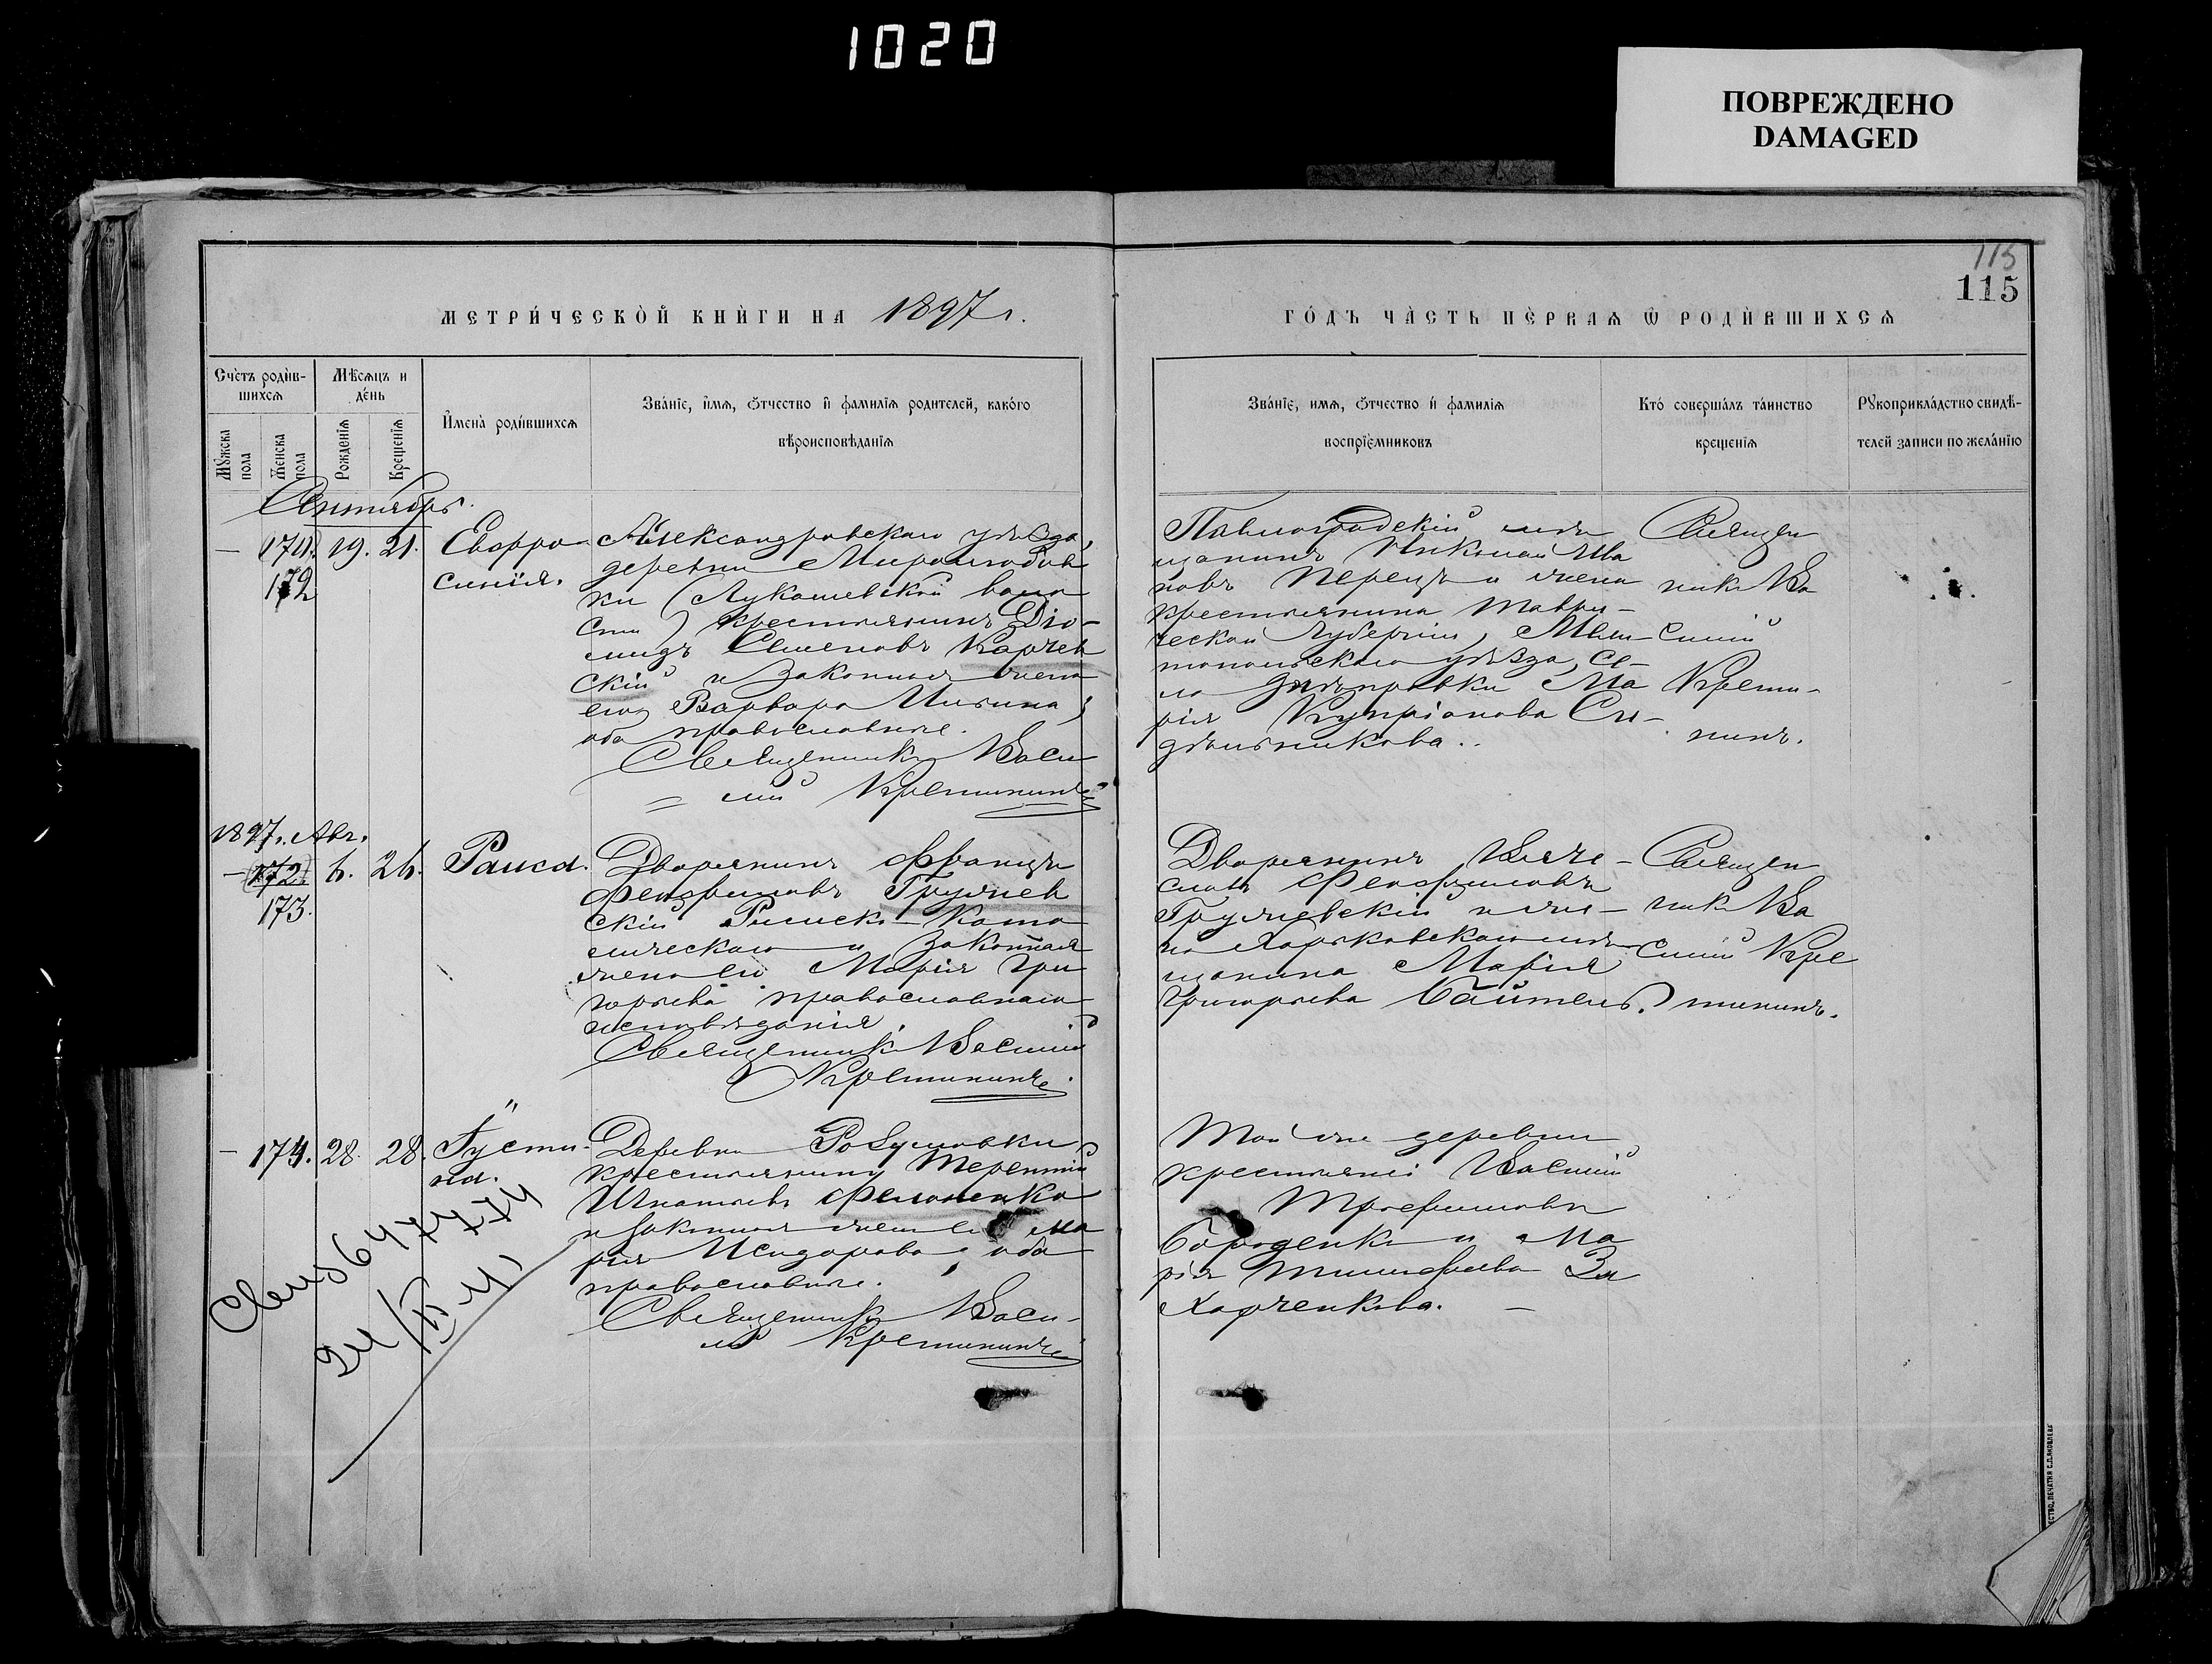 1020
ПОВРЕЖДЕНО
DAMAGED
115
115
МЕТРИ́ЧЕСКОЙ КНЍГИ НА 1897 г.
ГО́ДЪ ЧА̀СТЬ ПЀРВАѦ Ѡ҆ РОДЍВШИХСѦ
Счѐтъ роди̂в-
шихсѧ
Мѣ́сѧцъ и
де́нь
Мꙋ́жска
пола
Же́нска
пола
Рожде́нїѧ
Креще́нїѧ
И҆мена̀ роди́вшихсѧ
Зва́нїе, и҆́мѧ, ѻ҆́тчество и҆ фами́лїѧ роди́телей, како́гѡ
вѣроисповѣ́данїѧ
Зва́нїе, имѧ, ѻ҆́тчество и҆ фами́лїѧ
воспрїе́мниковъ
Кто́ соверша́лъ та́инство
креще́нїѧ
Рꙋкоприкла́дство свидѣ́-
телей записи по жела́нїю
Сентябрь.
— 171. 19. 21.
172
Евфро-
синія.
Александровскаго уѣзда,
деревни Миролюбов
ки (Лукашевской воло
сти) крестьянинъ Діо-
мидъ Семеновъ Карчев
скій и законная жена
его Варвара Ильина;
оба православные.
Священникъ Васи
лій Крештининъ
Павлоградскій мѣ
щанинъ Николай Ива
новъ Перецъ и жена
крестьянина Таври-
ческой губерніи, Мели-
топольскаго уѣзда, се-
ла Днѣпровки Ма
рія Купріанова Си-
дѣльникова.
Священ
никъ Ва
силій
Крешти-
нинъ.
1897. Авг.
— 172. 6. 26.
173.
Раиса.
Дворянинъ Францъ
Феофиловъ Гружев
скій Римско-Като
лическаго и законная
жена его Марія Гри
горьева православнаго
исповѣданія.
Священникъ Василій
Крештининъ.
Дворянинъ Вяче-
славъ Феофиловъ
Гружевскій и же-
на Харьковскаго мѣ
щанина Марія
Григорьева Байтель.
Священ
никъ Ва
силій Кре
штининъ.
— 174. 28. 28.
Іусти-
на.
Деревни Розумовки
крестьянинъ Терентій
Игнатьевъ Филоненко
и законная жена его Ма
рія Исидорова, оба
православные.
Священникъ Васи-
лій Крештининъ
Той же деревни
крестьяне: Василій
Трофимовъ
Бороденко и Ма
рія Тимофеева За
Харченкова. —